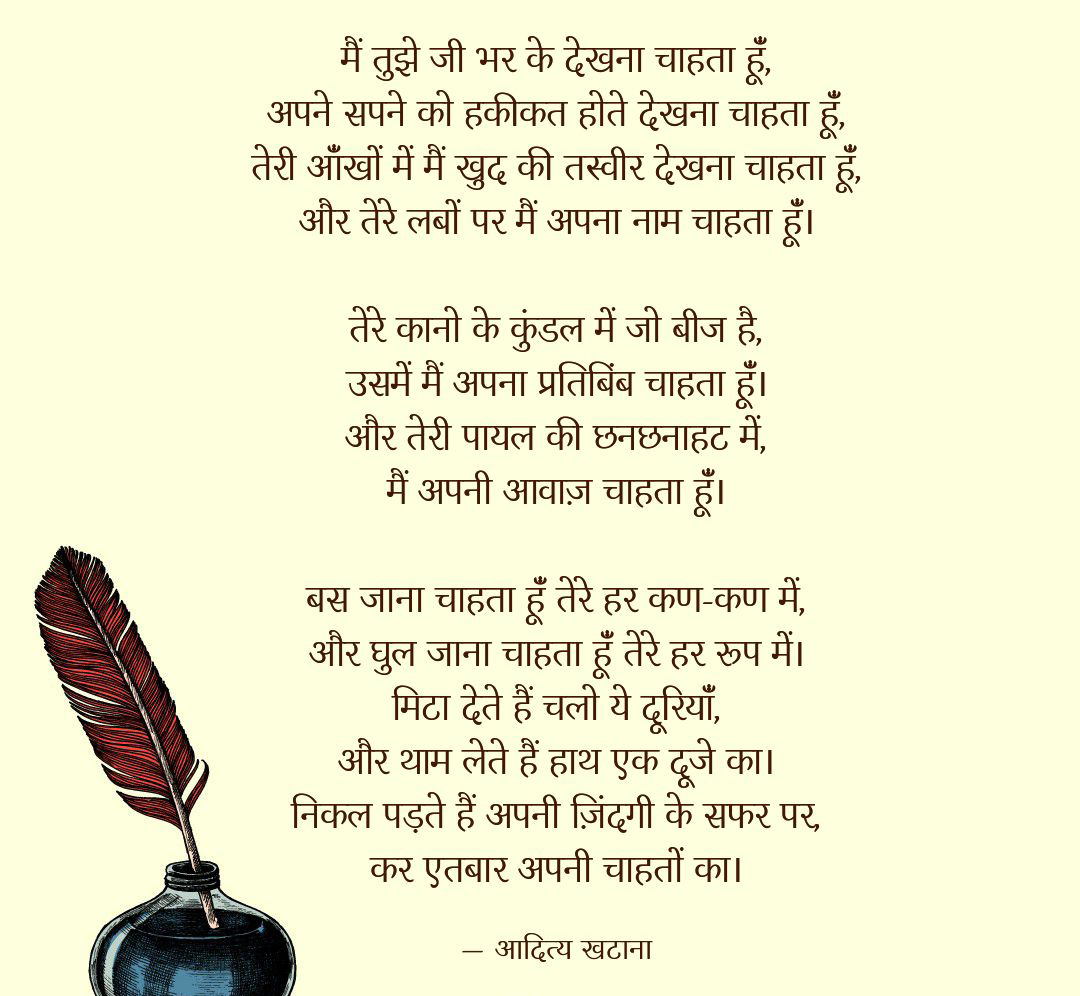 मैं तुझे जी भर के देखना चाहता हूँ,
अपने सपने को हकीकत होते देखना चाहता हूँ,
तेरी आँखों में मैं खुद की तस्वीर देखना चाहता हूँ,
और तेरे लबों पर मैं अपना नाम चाहता हूँ।
तेरे कानो के कुंडल में जो बीज है,
उसमें मैं अपना प्रतिबिंब चाहता हूँ।
और तेरी पायल की छनछनाहट में,
मैं अपनी आवाज़ चाहता हूँ।
बस जाना चाहता हूँ तेरे हर कण-कण में,
और घुल जाना चाहता हूँ तेरे हर रूप में।
मिटा देते हैं चलो ये दूरियाँ,
और थाम लेते हैं हाथ एक दूजे का।
निकल पड़ते हैं अपनी ज़िंदगी के सफर पर,
कर एतबार अपनी चाहतों का।
— आदित्य खटाना